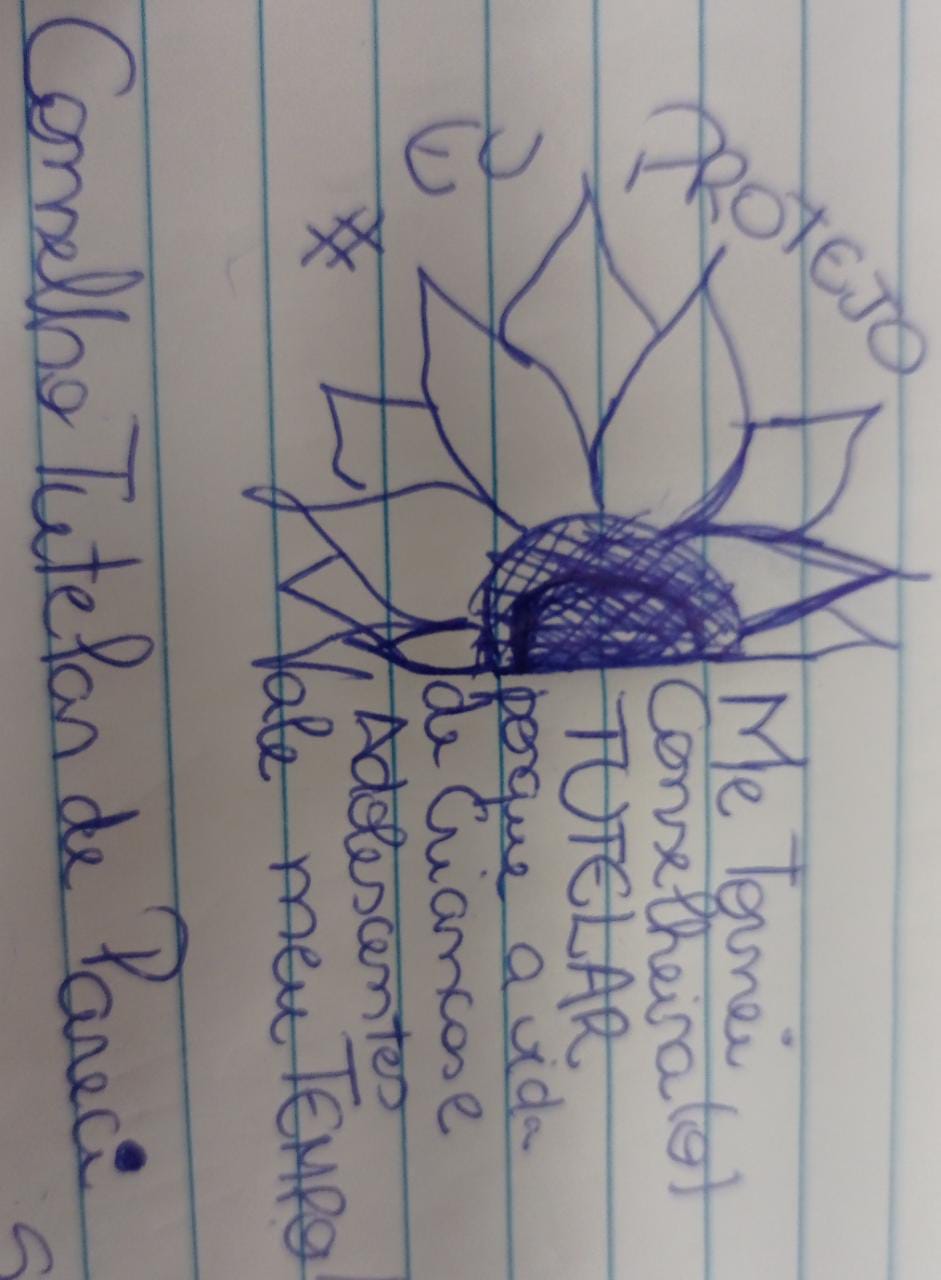 #EU PROTEJO
Me Tornei
Conselheira(o)
TUTELAR
porque a vida
de Crianças e
Adolescentes
Vale meu TEMPO!
Conselho Tutelar de Pareci